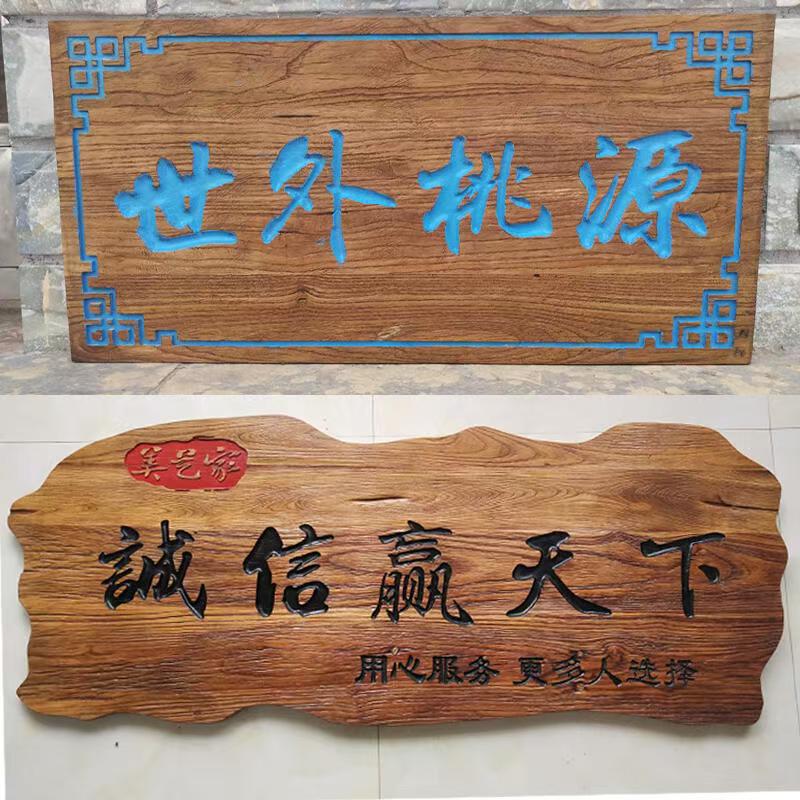 世外桃源
美艺家
誠信赢天下
用心服务 更多人选择